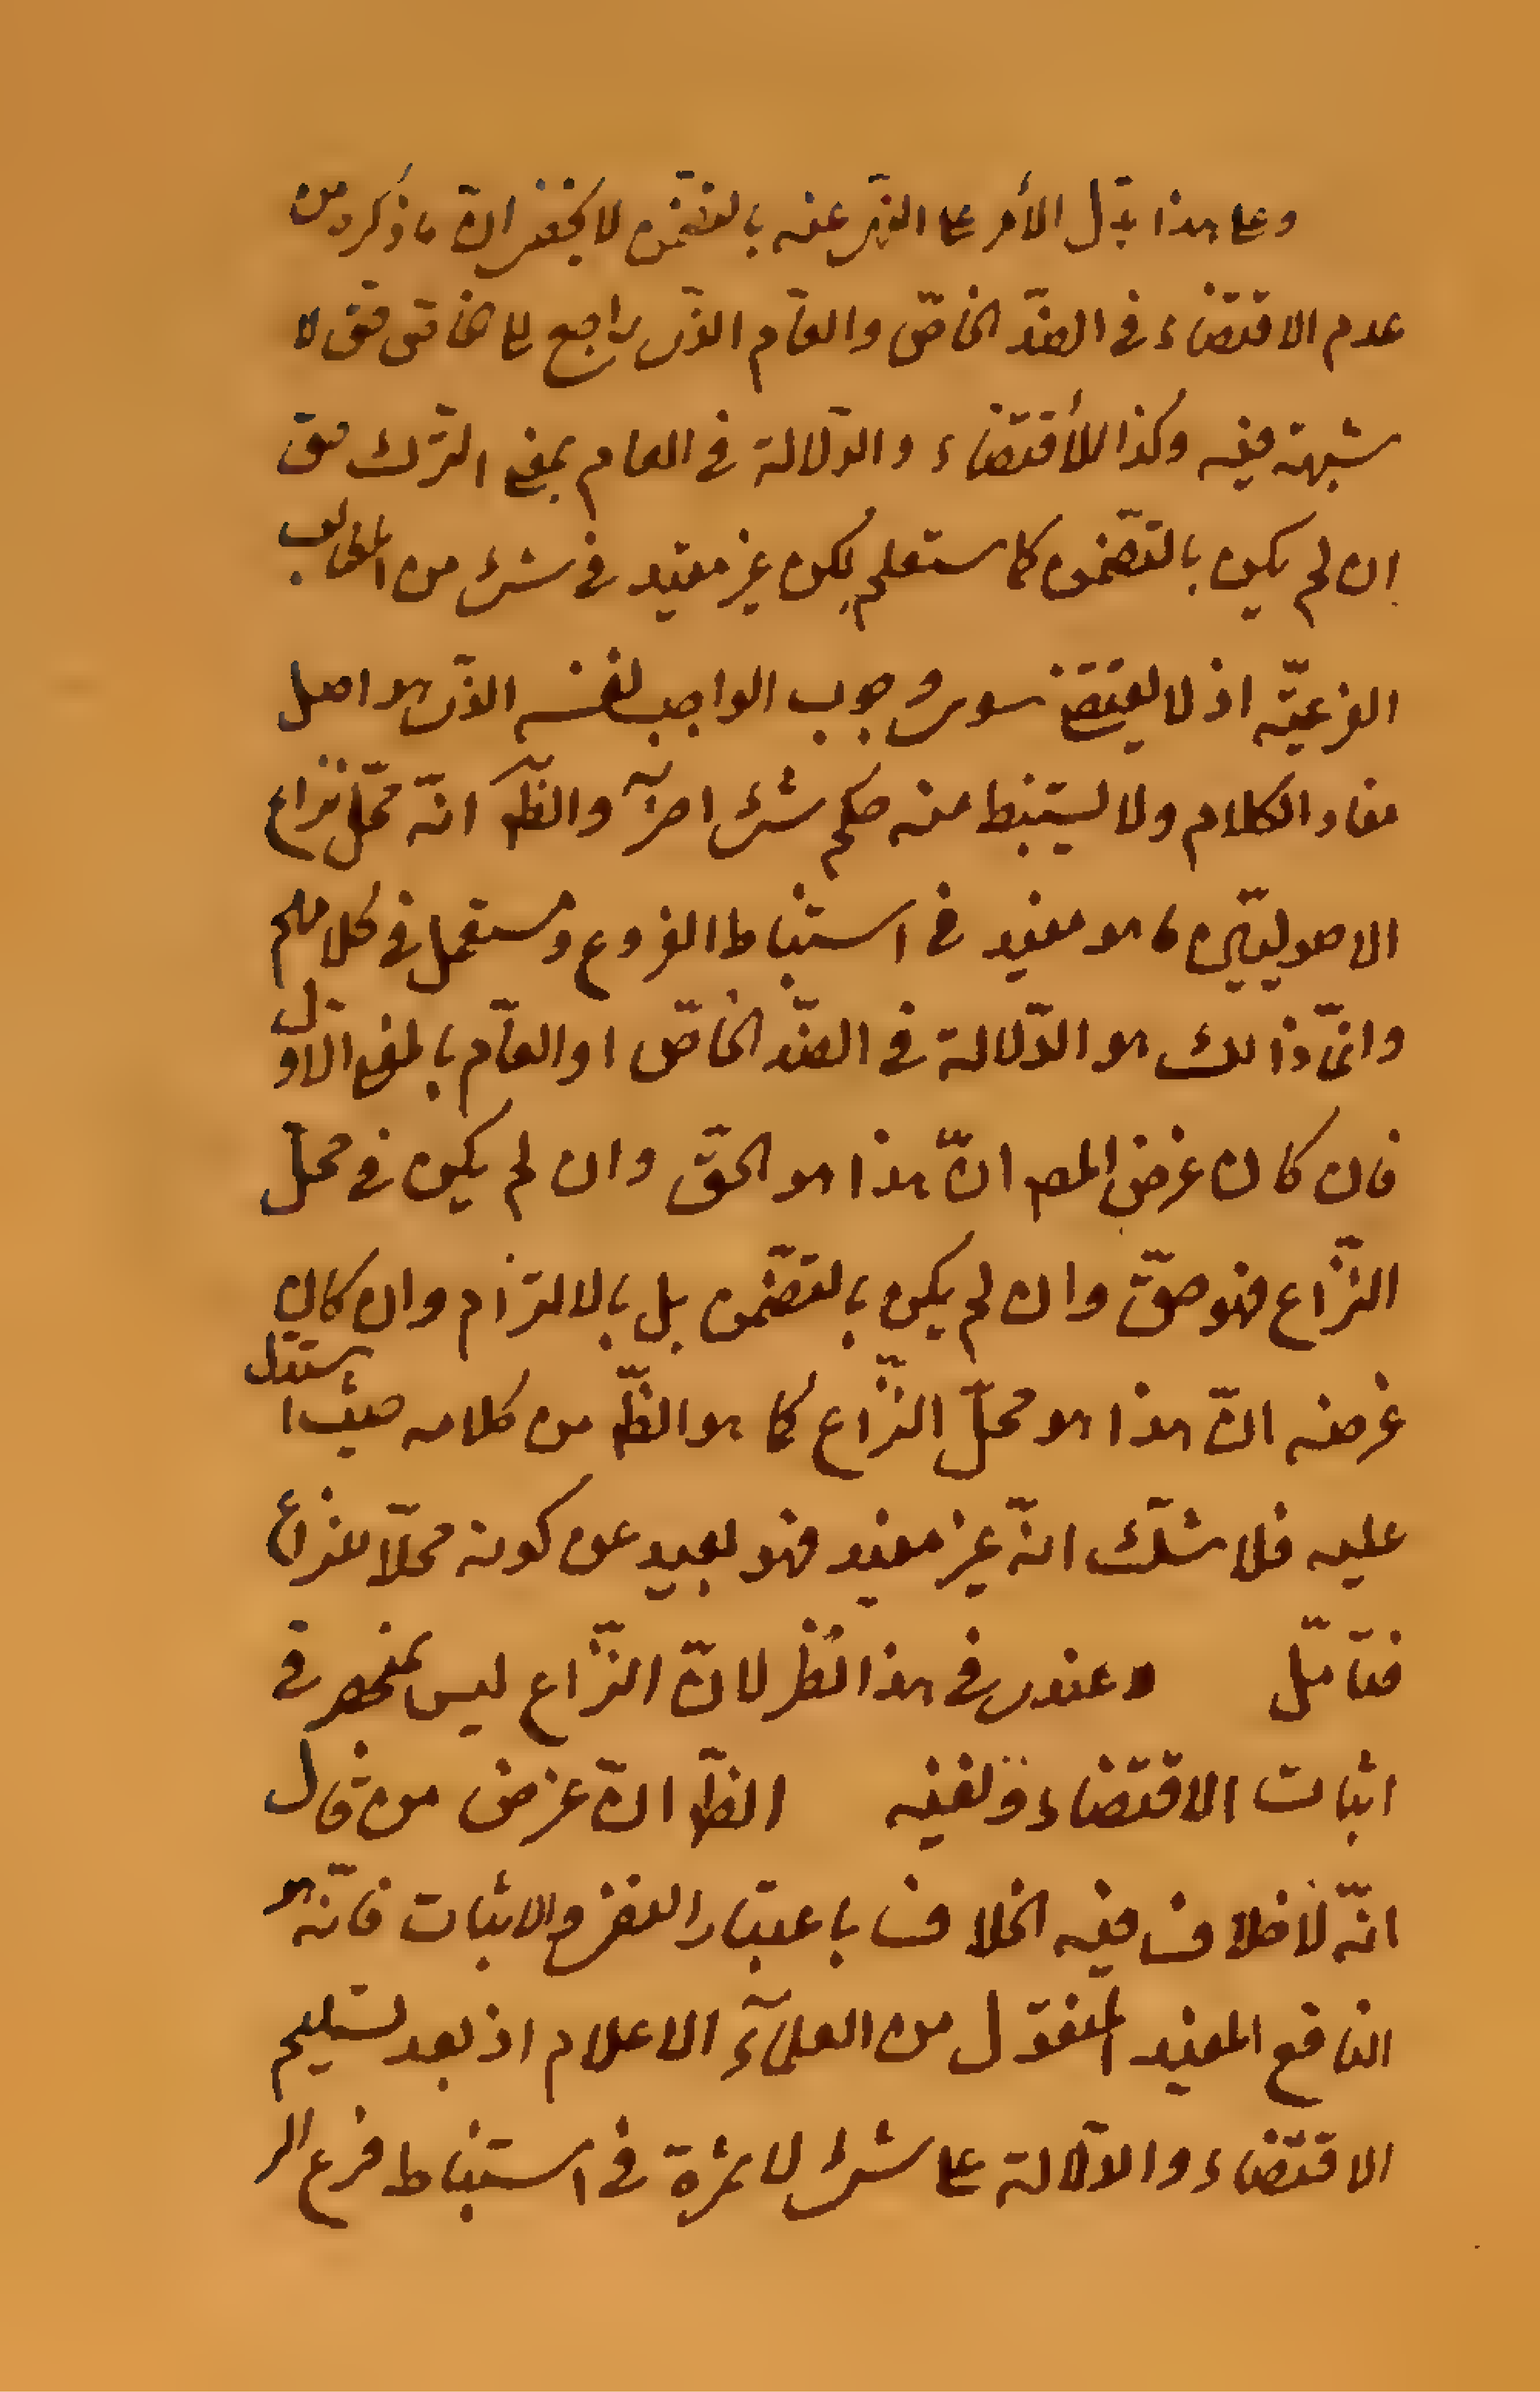 وعلى هذا يدل الأمر على النهى عنه بالتضمن لا يخفى ان ما ذكره من
عدم الاقتضاء فى الضد الخاص والعام الذى راجع الى الخاص حق لا
شبهة فيه وكذا الأقتضاء والدلالة فى العام بمعنى الترك حق
ان لم يكن بالتضمن كما ستعلم لكن غير مفيد فى شئ من المطالب
الفرعية اذ لا يقتضى سوى وجوب الواجب لنفسه الذى هو اصل
مفاد الكلام ولا يستنبط منه حكم شئ اخر والظ انه محل نزاع
الاصوليين ما هو مفيد فى استنباط الفروع ومستعمل فى كلامهم
وانما ذلك هو الدلالة فى الضد الخاص او العام بالمعنى الاول
فان كان غرض المص ان هذا هو الحق وان لم يكن فى محل
النزاع فهو حق وان لم يكن بالتضمن بل بالالتزام وان كان
غرضه ان هذا هو محل النزاع كما هو الظ من كلامه حيث استدل
عليه فلا شك انه غير مفيد فهو بعيد عن كونه محلا للنزاع
فتأمل وعندى فى هذا نظر لان النزاع ليس بمنحصر فى
اثبات الاقتضاء ونفيه الظ ان غرض من قال
انه لا خلاف فيه الخلاف باعتبار النفى والاثبات فانه هو
النافع المفيد المنقول من العلماء الاعلام اذ بعد تسليم
الاقتضاء والدلالة على شئ لا ثمرة فى استنباط فرع الى